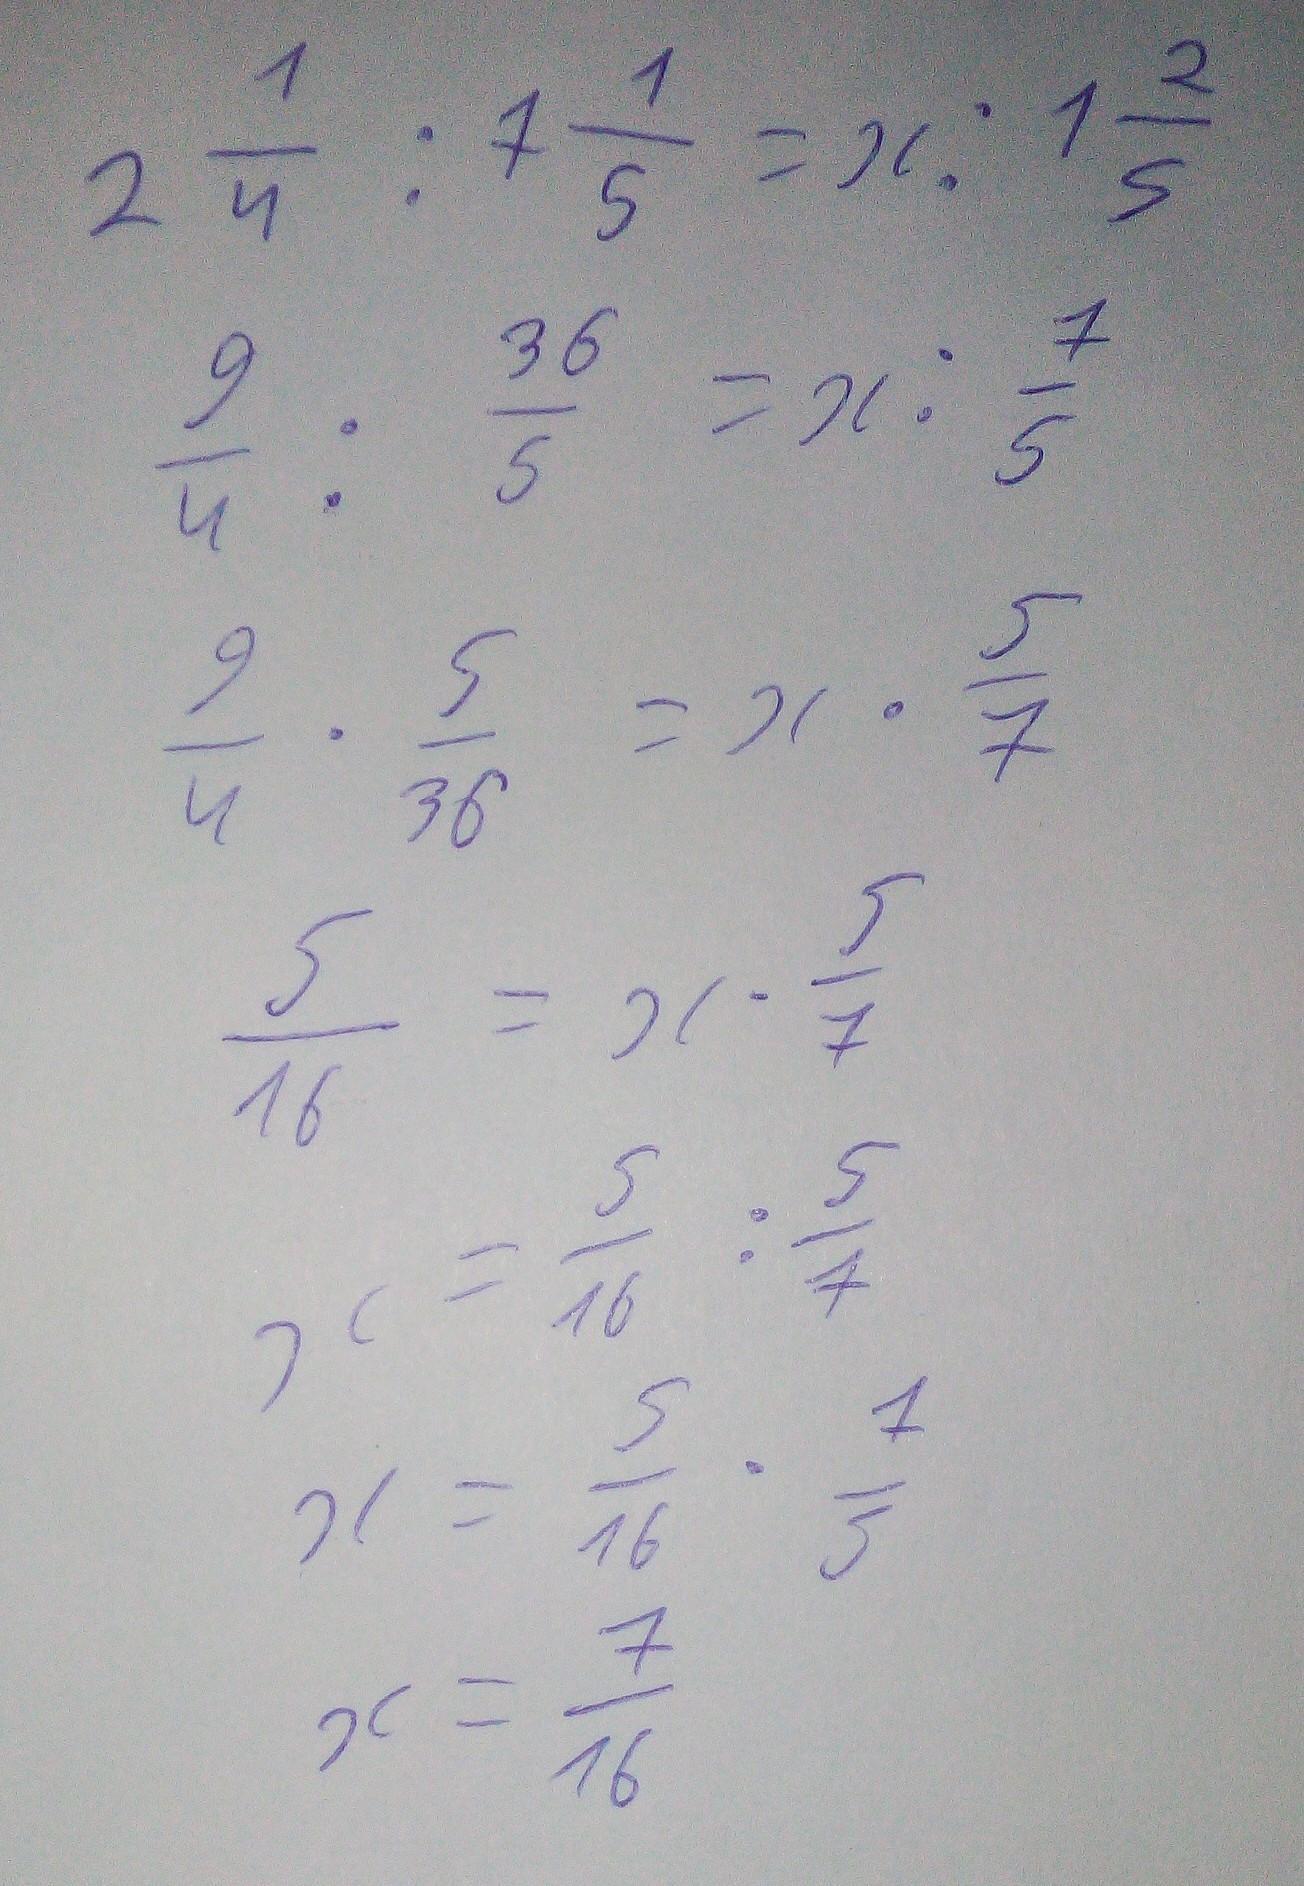 2 1/4 : 7 1/5 = x : 1 2/5
9/4 : 36/5 = x : 7/5
9/4 · 5/36 = x · 5/7
5/16 = x · 5/7
x = 5/16 : 5/7
x = 5/16 · 7/5
x = 7/16